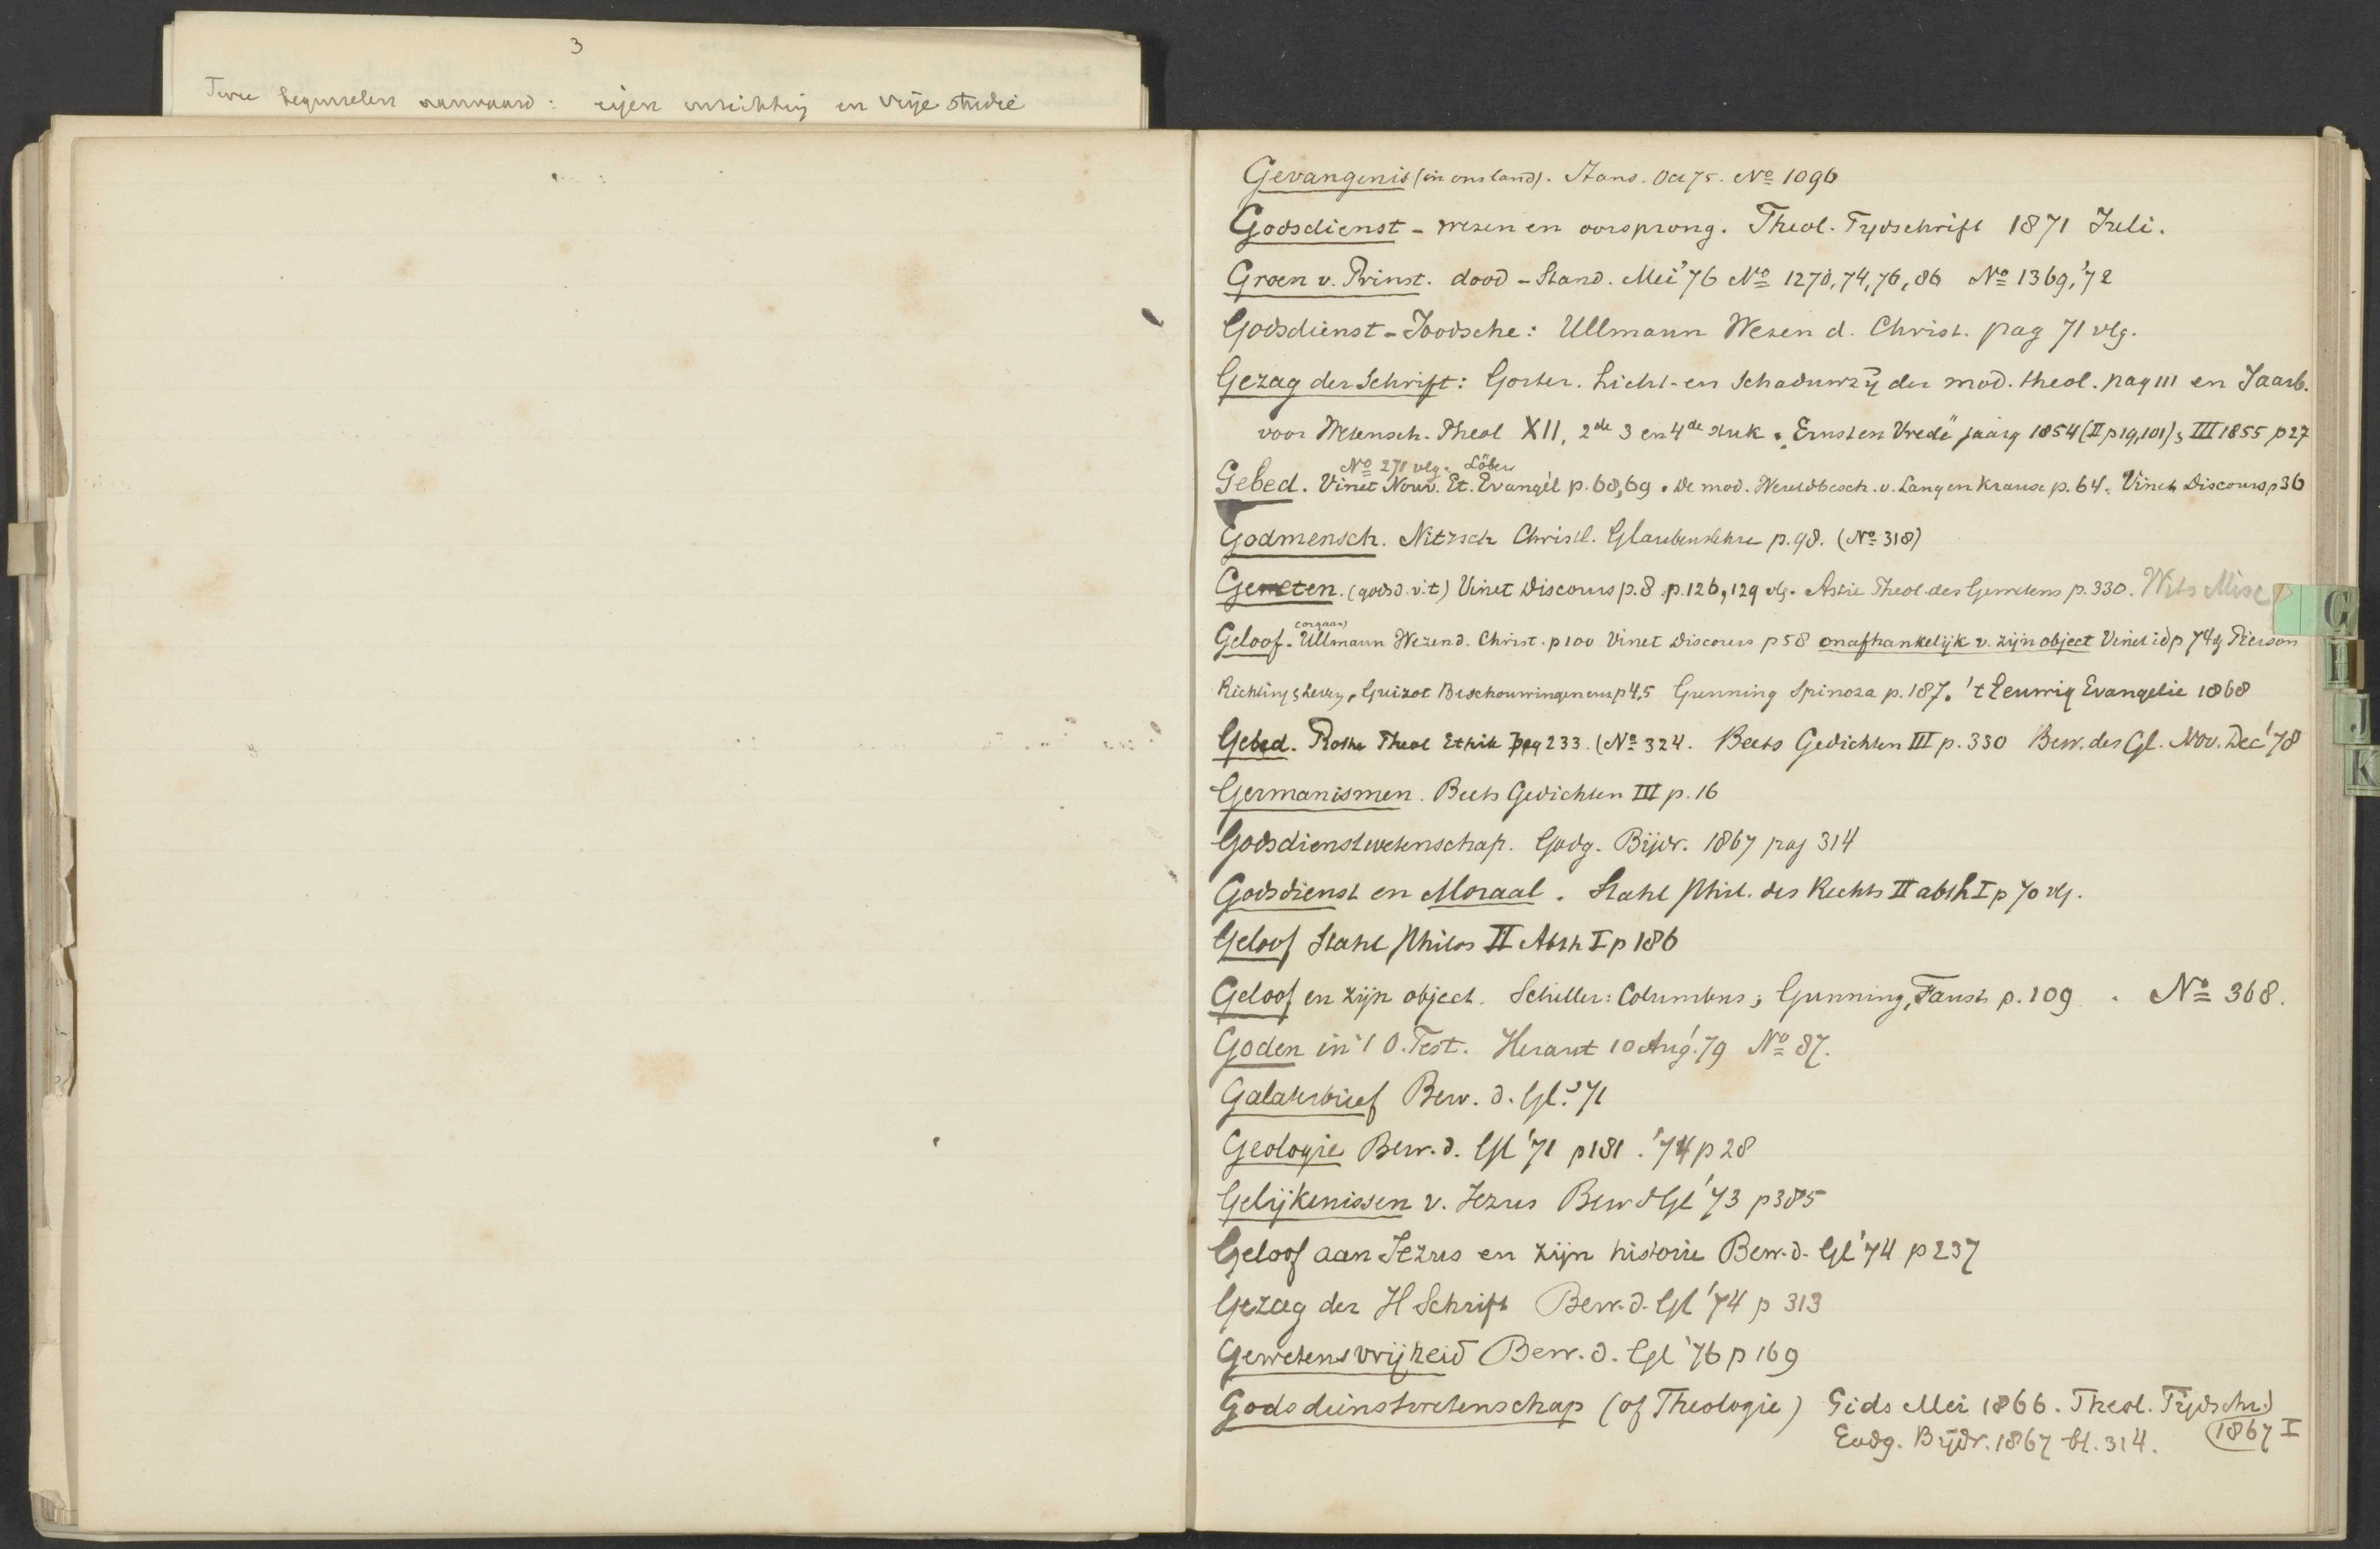 3
Twee beginselen aanvaard: eigen inrichting en vrije studie
Gevangenis (in ons land). Stand. Oct 75. No 1096
Godsdienst - wezen en oorsprong. Theol. Tydschrift 1871 Juli.
Groen v. Prinst. dood - Stand. Mei '76 No 1270, 74, 76, 86 No 1369, '72
Godsdienst - Joodsche: Ullmann Wesen d. Christ. pag 71 vlg.
Gezag der Schrift: Gorter. Licht- en Schaduwzij der mod. theol. pag 111 en Jaarb.
voor Wetensch. Theol XII, 2de 3 en 4de stuk. Ernst en Vrede jaarg 1854 (II p 19, 101), III 1855 p 27
No 271 vlg. Löber
Gebed. Vinet Nouv. Et. Evangél p. 68, 69. De mod. Wereldbesch. v. Lang en Krause p. 64. Vinet Discours p 36
Godmensch. Nitzsch Christl. Glaubenslehre p. 98. (No 318)
Geweten. (godsd. v. t) Vinet Discours p. 8. p. 126, 129 vlg. Astié Theol. des Gewetens p. 330. Wits Misc
(orgaan)
Geloof. Ullmann Wezen d. Christ. p 100 Vinet Discours p 58 onafhankelijk v. zijn object Vinet id p 74 vlg Pierson
Richting & Leven, Guizot Beschouwingen enz p 4, 5 Gunning Spinoza p. 187. 't Eeuwig Evangelie 1868
Gebed. Rothe Theol Ethik pag 233. (No 324. Beets Gedichten III p. 330 Bew. des Gl. Nov. Dec '78
Germanismen. Beets Gedichten III p. 16
Godsdienstwetenschap. Godg. Bijdr. 1867 pag 314
Godsdienst en Moraal. Stahl Phil. des Rechts II abth I p 70 vlg.
Geloof Stahl Philos II Abth I p 186
Geloof en zijn object. Schiller: Columbus; Gunning, Faust p. 109. No 368.
Goden in 't O. Test. Heraut 10 Aug. '79 No 87.
Galaterbrief Bew. d. Gl. '71
Geologie Bew. d. Gl '71 p 181. '74 p 28
Gelijkenissen v. Jezus Bew d Gl '73 p 385
Geloof aan Jezus en zijn historie Bew. d. Gl '74 p 237
Gezag der H Schrift Bew. d. Gl '74 p 313
Gewetensvrijheid Bew. d. Gl '76 p 169
Godsdienstwetenschap (of Theologie) Gids Mei 1866. Theol. Tijdschr.)
Godg. Bijdr. 1867 bl. 314. 1867 I
G
H
J
K